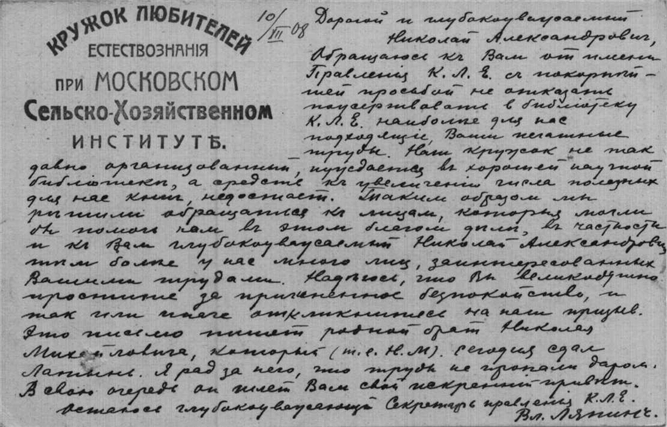 КРУЖОК ЛЮБИТЕЛЕЙ
ЕСТЕСТВОЗНАНІЯ
ПРИ МОСКОВСКОМ
Сельско-Хозяйственном
ИНСТИТУТѢ.
10/XII 08
Дорогой и глубокоуважаемый
Николай Александровичъ,
Обращаюсь къ Вамъ отъ имени
Правленія К. Л. Е. съ покорнѣй-
шей просьбой не отказать
пожертвовать в библіотеку
К.Л.Е. наиболѣе для нас
подходящіе, Ваши печатные
труды. Наш кружок не так
давно организованный, нуждается въ хорошей научной
библіотекѣ, а средств къ увеличенію числа полезных
для нас книг, недостает. Таким образом мы
рѣшили обращаться к лицам, которыя могли
бы помочь нам въ этом благом дѣлѣ, в частности
и къ Вам глубокоуважаемый Николай Александрович
тѣм болѣе у нас много лиц, заинтересованных
Вашими трудами. Надѣюсь, что Вы великодушно
простите за причиненное безпокойство, и
так или иначе откликнитесь на наш призыв.
Это письмо пишет родной брат Николая
Михайловича, который (т.е. Н.М.) сегодня сдал
Латынь. Я рад за него, что труды не пропали даром.
В свою очередь он шлет Вам свой искренній привѣт.
Остаюсь глубокоуважающій Секретарь правленія К.Л.Е.
Вл. Ляпинъ.